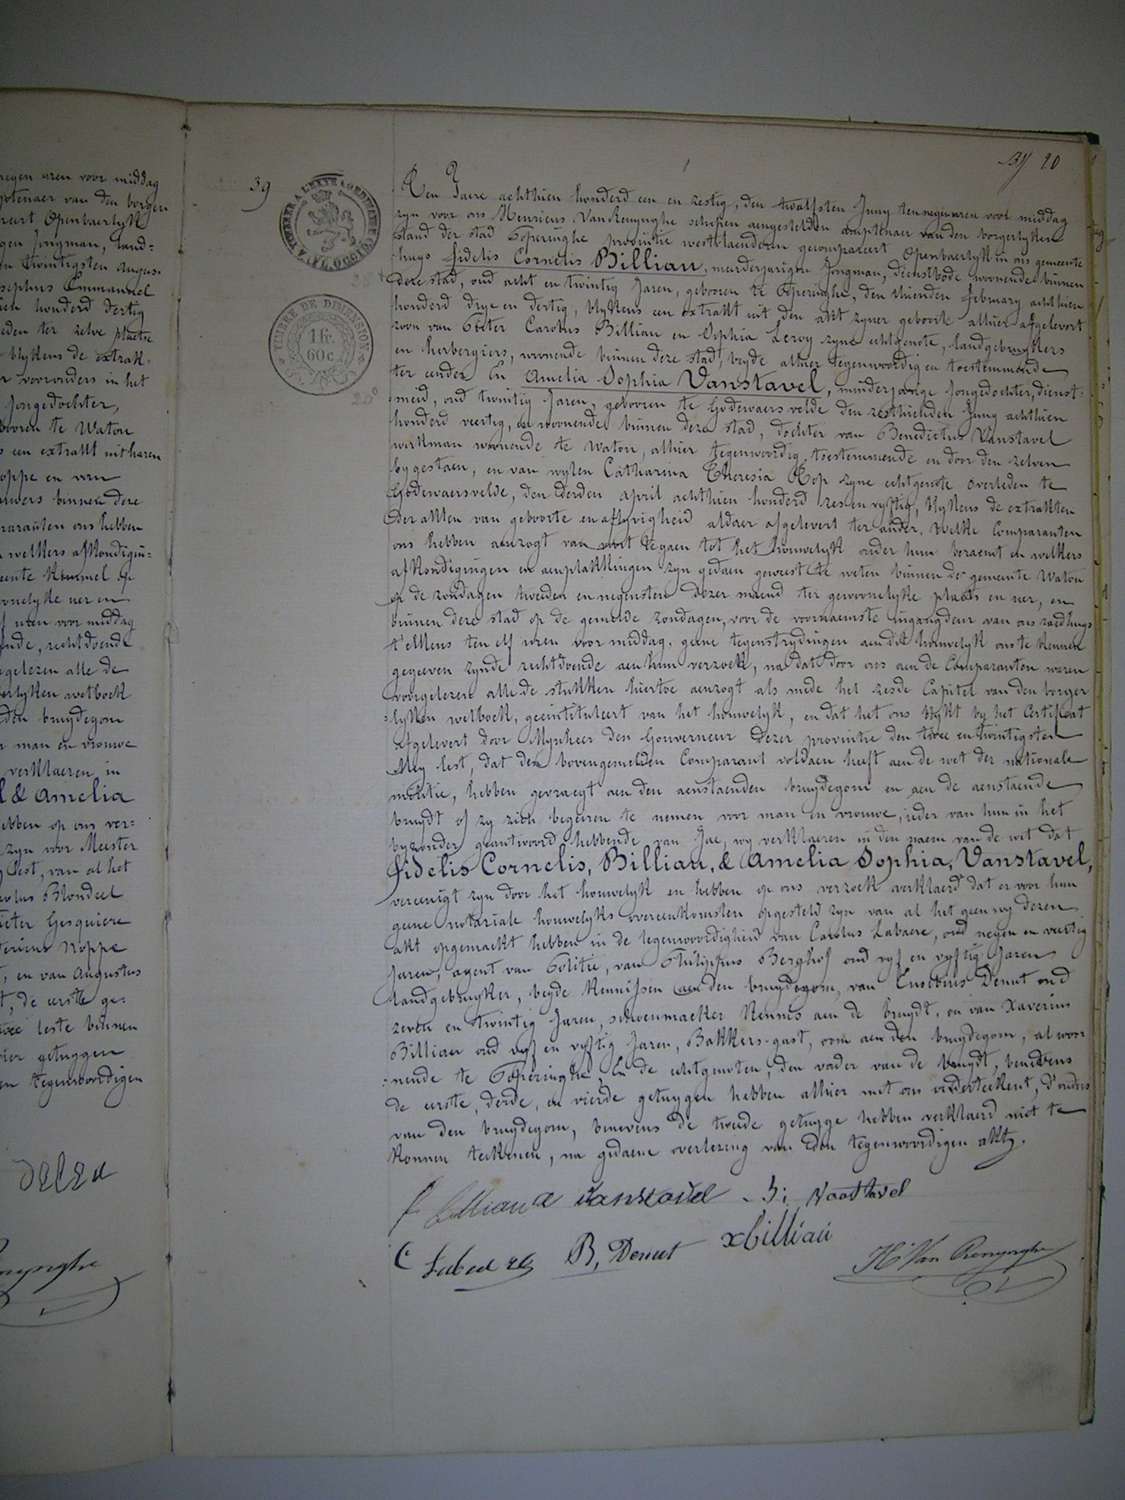 negen uren voor middag
Openbaerlyk
Jongman, land-
twintigsten
Emmanuel
honderd dertig
ter zelve plaetse
blykens de extrak-
voorouders in het
Jongedochter,
te Waton
een extrakt uit haren
en van
binnen deze
ons hebben
welkers afkondigin-
Kemmel op
uer en
uren voor middag
rechtdoende
gelezen alle de
wetboek
den bruydegom
man en vrouwe
verklaeren in
& Amelia
hebben op ons ver-
zyn voor Meester
lest, van al het
Blondeel
Gesquiere
Noppe
en van Augustus
de eerste ge-
leste binnen
getuygen
tegenwoordigen
DELEU
39
Bl 20
1 fr.
60 c.
TIMBRE DE DIMENSION
Ten Jaere achthien honderd een en zestig, den twaelfsten Juny ten negen uren voor middag
zyn voor ons Henricus VanRenynghe schepen aengestelden amptenaer van den borgerlyken
stand der stad Poperinghe provintie westvlaenderen gecompareert Openbaerlyk in ons gemeente
huys Fidelis Cornelis Billiau, meerderjarigen Jongman, dienstbode woonende binnen
deze stad, oud acht en twintig Jaren, geboren te Poperinghe, den thienden february achthien
honderd drye en dertig, blykens een extrakt uit den akt zyner geboorte alhier afgelevert
zoon van Pieter Carolus Billiau en Sophia Leroy zyne echtgenote, landgebruykers
en herbergiers, woonende binnen deze stad, beyde alhier tegenwoordig en toestemmende
ter eender En Amelia Sophia Vanstavel, minderjarige Jongedochter, dienst-
meid, oud twintig Jaren, geboren te Godewaersvelde den zesthienden Juny achthien
honderd veertig, en woonende binnen deze stad, dochter van Benedictus Vanstavel
werkman woonende te Waton, alhier tegenwoordig toestemmende en door den zelven
bygestaen, en van wylen Catharina Theresia Kop zyne echtgenote overleden te
Godewaersvelde, den derden april achthien honderd zes en vyftig, blykens de extrakten
der akten van geboorte en aflyvigheid aldaer afgelevert ter ander. Welke Comparanten
ons hebben aenzogt van voort te gaen tot het houwelyk onder hun beraemt en welkers
afkondigingen en aenplakkingen zyn gedaen geweest te weten binnen de gemeente Waton
op de zondagen tweeden en negensten dezer maend ter gewoonelyke plaets en uer, en
binnen deze stad op de gemelde zondagen, voor de voornaemste ingangdeur van ons raedhuys
t'elkens ten elf uren voor middag, geene tegenstrydingen aen dit houwelyk ons te kennen
gegeeven zynde rechtdoende aen hun verzoek, na dat door ons aen de Comparanten waren
voorgelezen alle de stukken hiertoe aenzogt als mede het zesde Capitel van den borger
lyken wetboek, geintituleert van het houwelyk, en dat het ons blykt by het Certifikaat
afgelevert door Mynheer den Gouverneur dezer provintie den twee en twintigsten
Mey lest, dat den bovengemelden Comparant voldaen heeft aen de wet der nationale
militie, hebben gevraegt aen den aenstaenden bruydegom en aen de aenstaende
bruydt of zy zich begeeren te nemen voor man en vrouwe, ieder van hun in het
byzonder geantwoord hebbende van Jae, wy verklaeren in den naem van de wet dat
Fidelis Cornelis, Billiau, & Amelia Sophia, Vanstavel,
vereenigt zyn door het houwelyk en hebben op ons verzoek verklaerd dat er voor hun
geene notariale houwelyks overeenkomsten opgesteld zyn van al het geen wy dezen
akt opgemaekt hebben in de tegenwoordigheid van Carolus Labaere, oud negen en veertig
Jaren, agent van Politie, van Philippus Berghof oud vyf en vyftig Jaren
landgebruyker, beyde kennissen aen den bruydegom, van Eusebius Denut oud
zeven en twintig Jaren, schoenmaeker kennis aen de bruydt, en van Xaverius
Billiau oud vyf en vyftig Jaren, Bakkers-gast, oom aen den bruydegom, al woo-
nende te Poperinghe, En de echtgenoten, den vader van de bruydt, benevens
de eerste, derde, en vierde getuygen hebben alhier met ons onderteekent, d'ouders
van den bruydegom, benevens de tweede getuyge hebben verklaerd niet te
konnen teekenen, na gedaene overlezing van den tegenwoordigen akt.
f billiau a vanstavel B: Vanstavel
C Labaere B, Denut x billiau H Van Renynghe